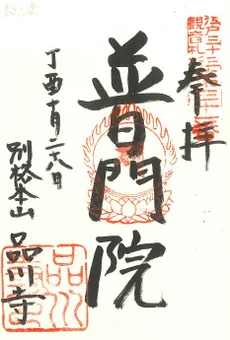 江戸三十三
観音札
奉拝
普門院
丁酉十月二十八日
別格本山 品川寺